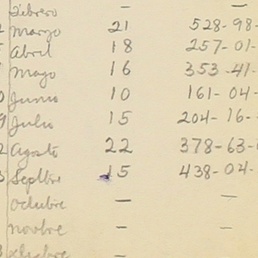 Febrero —
Marzo 21 528-98-
Abril 18 257-01-
Mayo 16 353-41-
Junio 10 161-04-
Julio 15 204-16-
Agosto 22 378-63-
Septbre 15 438-04-
octubre — —
novbre — —